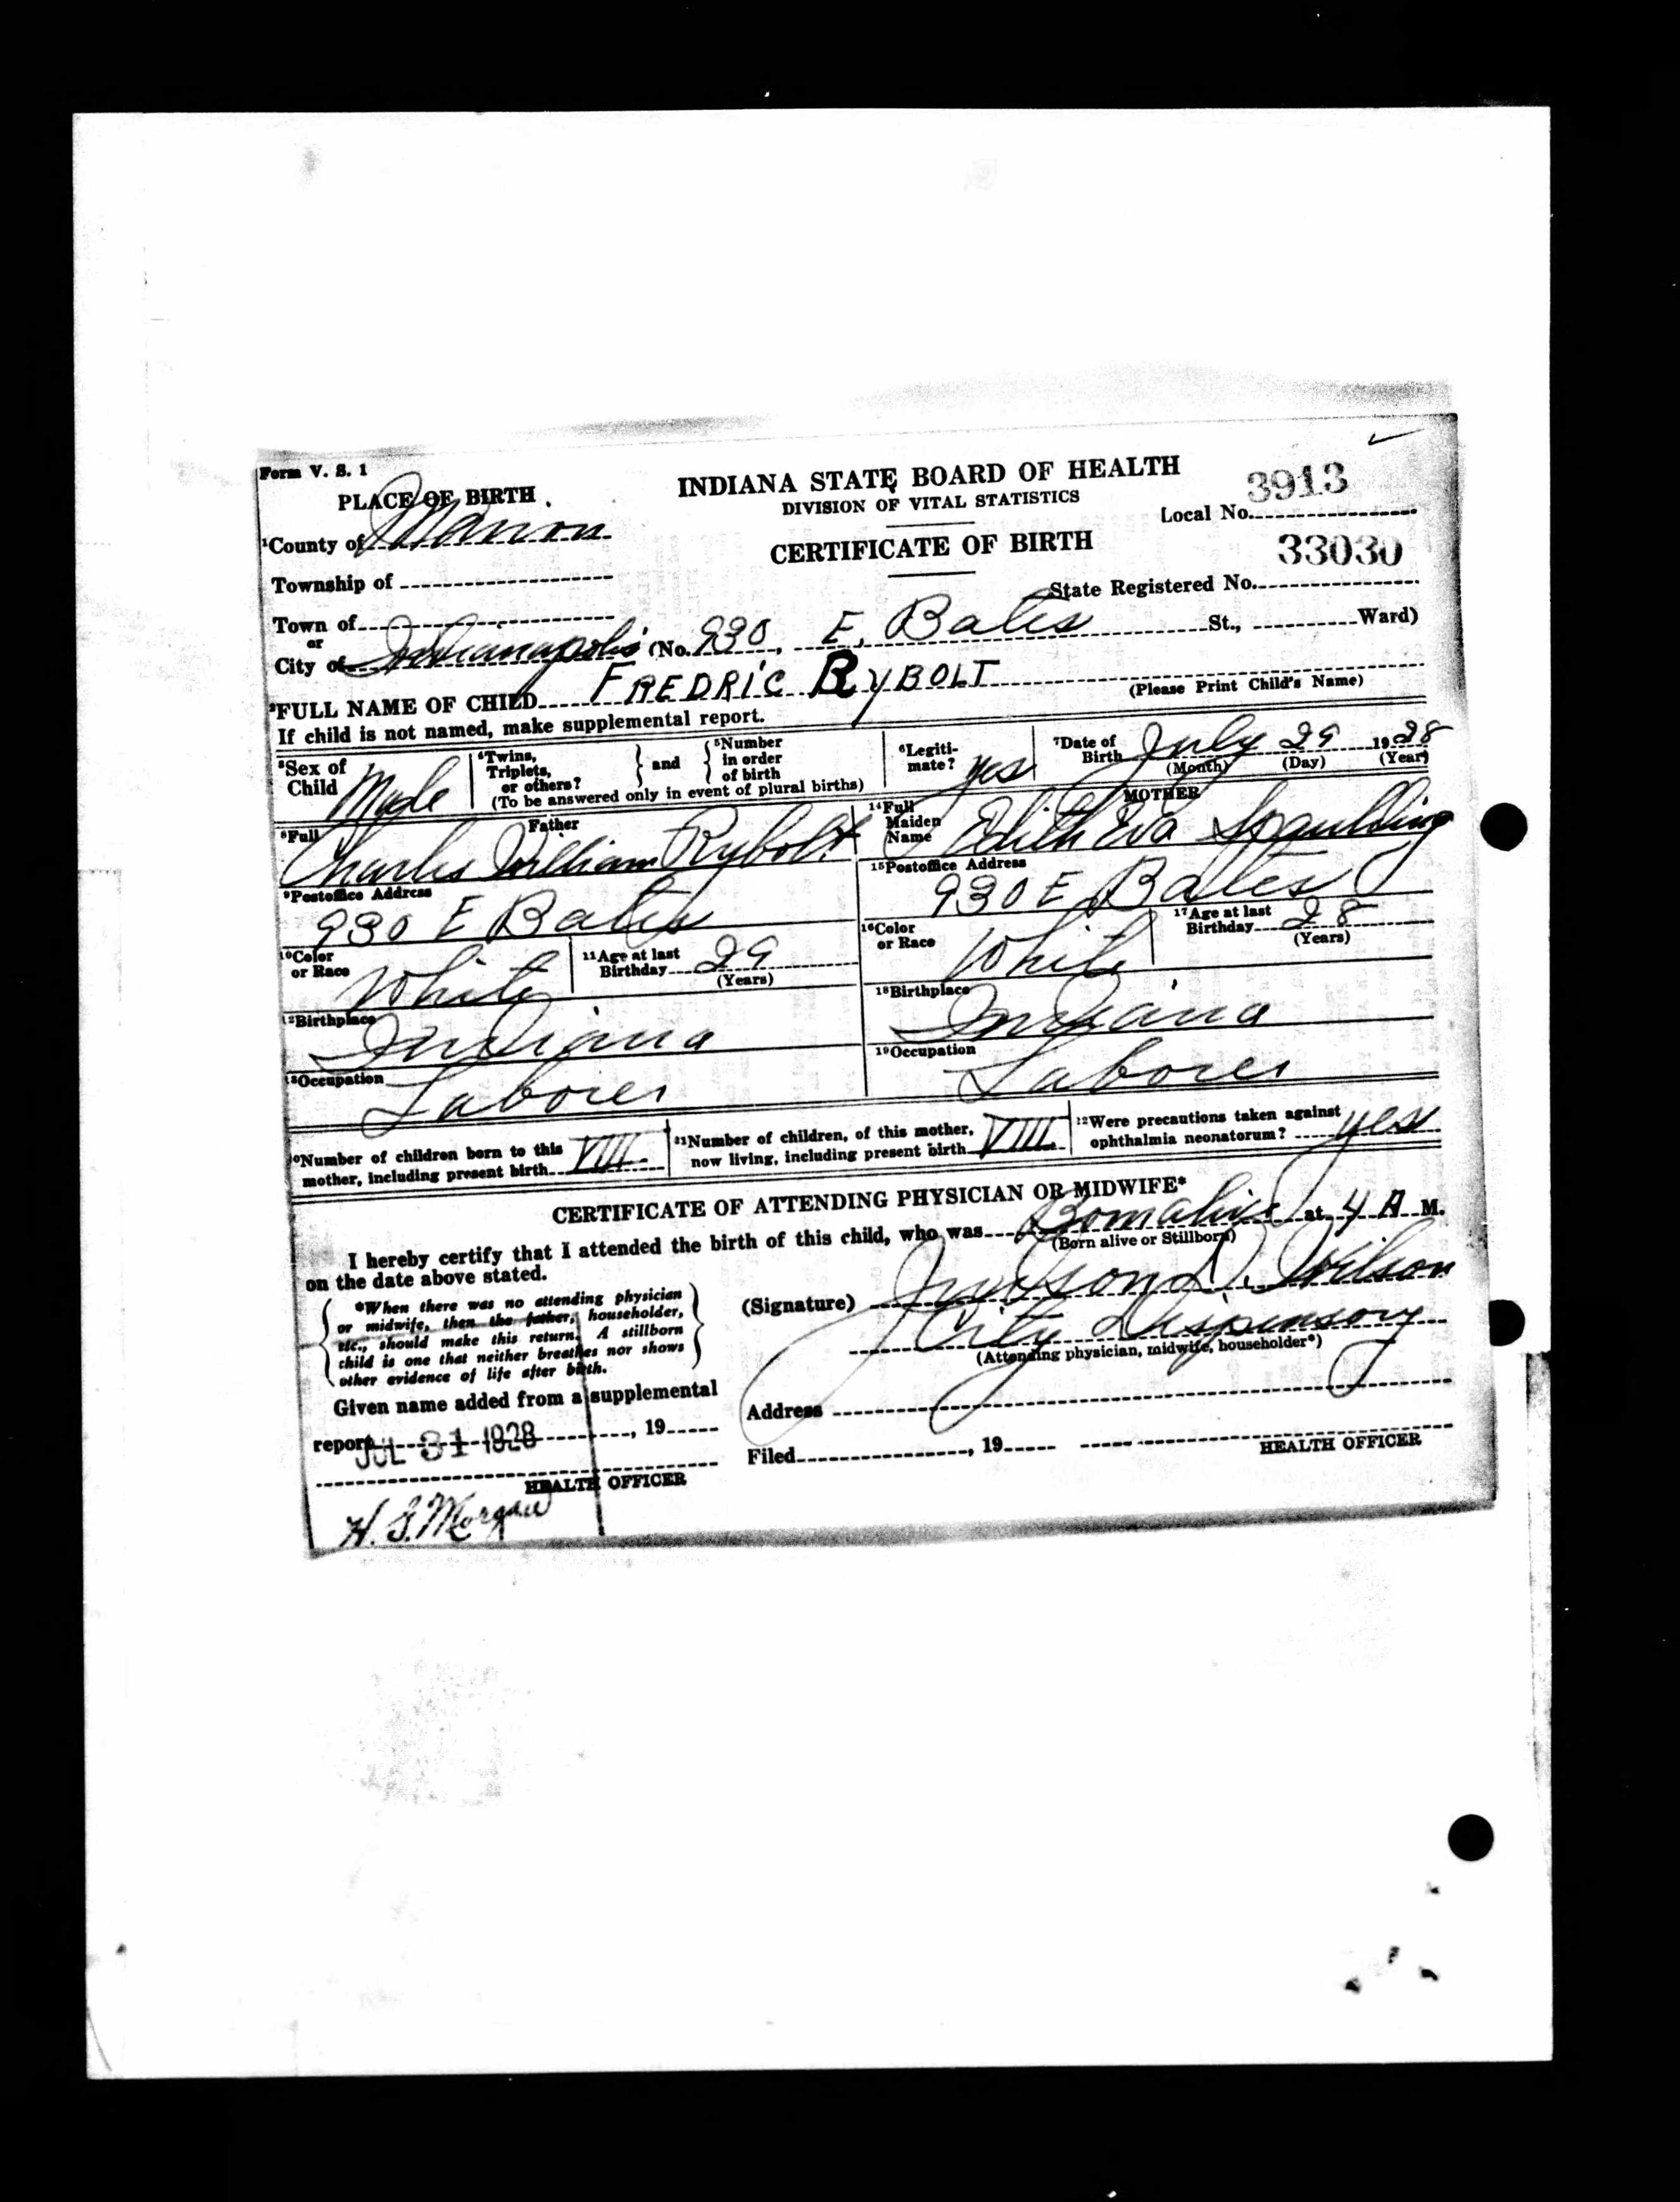 Form V. S. 1
INDIANA STATE BOARD OF HEALTH
DIVISION OF VITAL STATISTICS
CERTIFICATE OF BIRTH
3913
Local No.
33030
State Registered No.
PLACE OF BIRTH
1County of Marion
Township of
Town of
or
City of Indianapolis (No. 930, E. Bates St., Ward)
2FULL NAME OF CHILD FREDRIC RYBOLT
(Please Print Child's Name)
If child is not named, make supplemental report.
3Sex of Child Male
4Twins, Triplets, or others? } and { 5Number in order of birth
(To be answered only in event of plural births)
6Legiti-mate? yes
7Date of Birth July 29 1928
(Month) (Day) (Year)
Father
8Full Charles William Rybolt
MOTHER
14Full Maiden Name Edith Eva Spaulding
9Postoffice Address
930 E Bates
15Postoffice Address
930 E Bates
10Color or Race White
11Age at last Birthday 29
(Years)
16Color or Race White
17Age at last Birthday 28
(Years)
12Birthplace
Indiana
18Birthplace
Indiana
13Occupation
Laborer
19Occupation
Laborer
20Number of children born to this mother, including present birth VIII
21Number of children, of this mother, now living, including present birth VIII
22Were precautions taken against ophthalmia neonatorum? yes
CERTIFICATE OF ATTENDING PHYSICIAN OR MIDWIFE*
I hereby certify that I attended the birth of this child, who was Born alive at 4 A M.
(Born alive or Stillborn)
on the date above stated.
*When there was no attending physician
or midwife, then the father, householder,
etc., should make this return. A stillborn
child is one that neither breathes nor shows
other evidence of life after birth.
(Signature) Judson D. Wilson
City Dispensary
(Attending physician, midwife, householder*)
Given name added from a supplemental
report JUL 31 1928, 19
HEALTH OFFICER
H. S. Morgan
Address
Filed, 19
HEALTH OFFICER